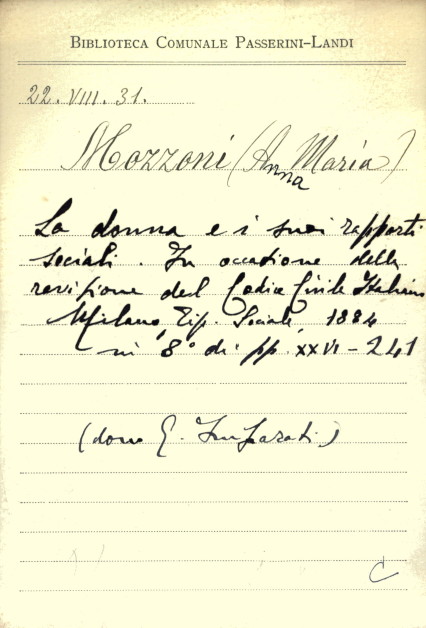 BIBLIOTECA COMUNALE PASSERINI-LANDI
22. VIII. 31.
Mozzoni (Anna Maria)
La donna e i suoi rapporti
sociali. In occasione della
revisione del Codice Civile Italiano
Milano, Tip. Sociale, 1884
in 8° di pp. XXVI-241
(dono E. Imparati)
C